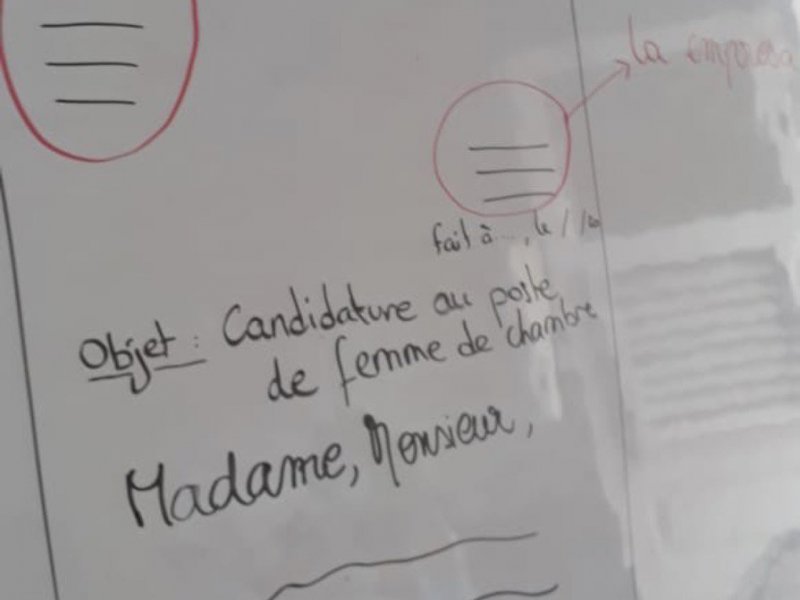 la empresa
fait à ..., le / /20
Objet : Candidature au poste
de femme de chambre
Madame, Monsieur,